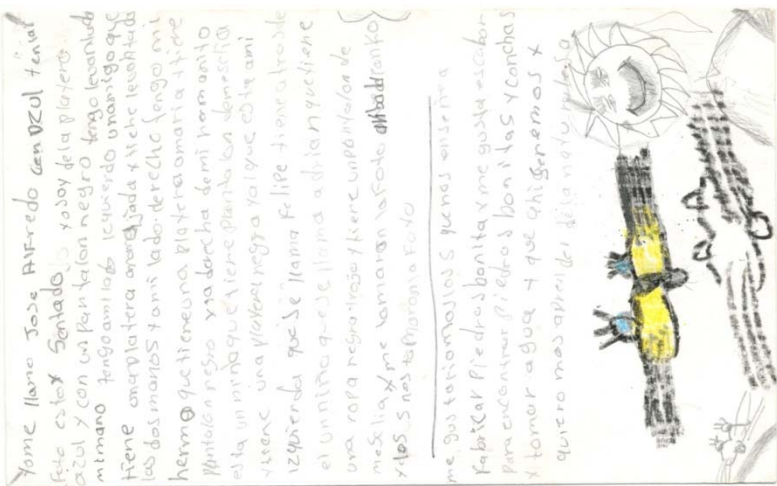 Yo me llamo Jose Alfredo Can Dzul tenia
foto estoy Sentado yo soy de la playera
azul y con un Pantalon negro tengo levantada
mi mano tengo a mi lado izquierdo un amigo que
tiene una playera anaranjada y tiene levantada
las dos manos y a mi lado derecho tengo mi
hermo que tiene una Playera amaria y tiene
Pantalon negro y a derecha de mi hermanito
esta un niño que tiene Pantalon de mesclia
y tiene una playera negra ya que esta a mi
izquierda que se llama Felipe tiene atros de
el un niño que se llama adrian que tiene
una ropa negra y roja y tiene un pantalon de
mesclia y me la a la foto
y dos s nos tomaron la foto
me gustario mas que nos enseñea
Fabricar Piedras bonita y me gusta escabar
Para encontrar piedras bonitas y conchas
y tomar agua y que ahi y
quiero mas aprender de la naturalesa